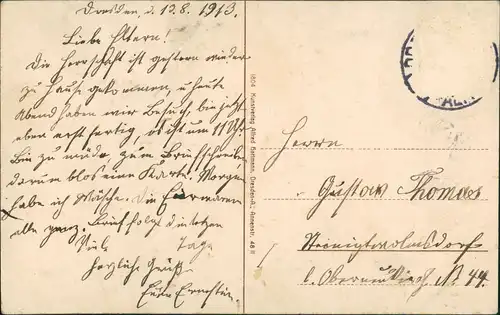 Dresden, d. 12.8.1913.
Liebe Eltern!
Die Herrschaft ist gestern wieder
zu Hause gekommen, u heute
Abend haben wir Besuch, bin jetzt
aber erst fertig, es ist um 11 Uhr.
Bin zu müde, zum Briefschreiben
darum blos eine Karte. Morgen
habe ich Wäsche. Die
alle ganz. Brief folgt
Viele Tage
herzliche Grüße
Eure Ernestine.
1804 Kunstverlag Alfred Hartmann, Dresden-A., Annenstr. 48 II
Herrn
Gustav Thomas
Steinigtwolmsdorf
b. Oberneukirch N. 44.